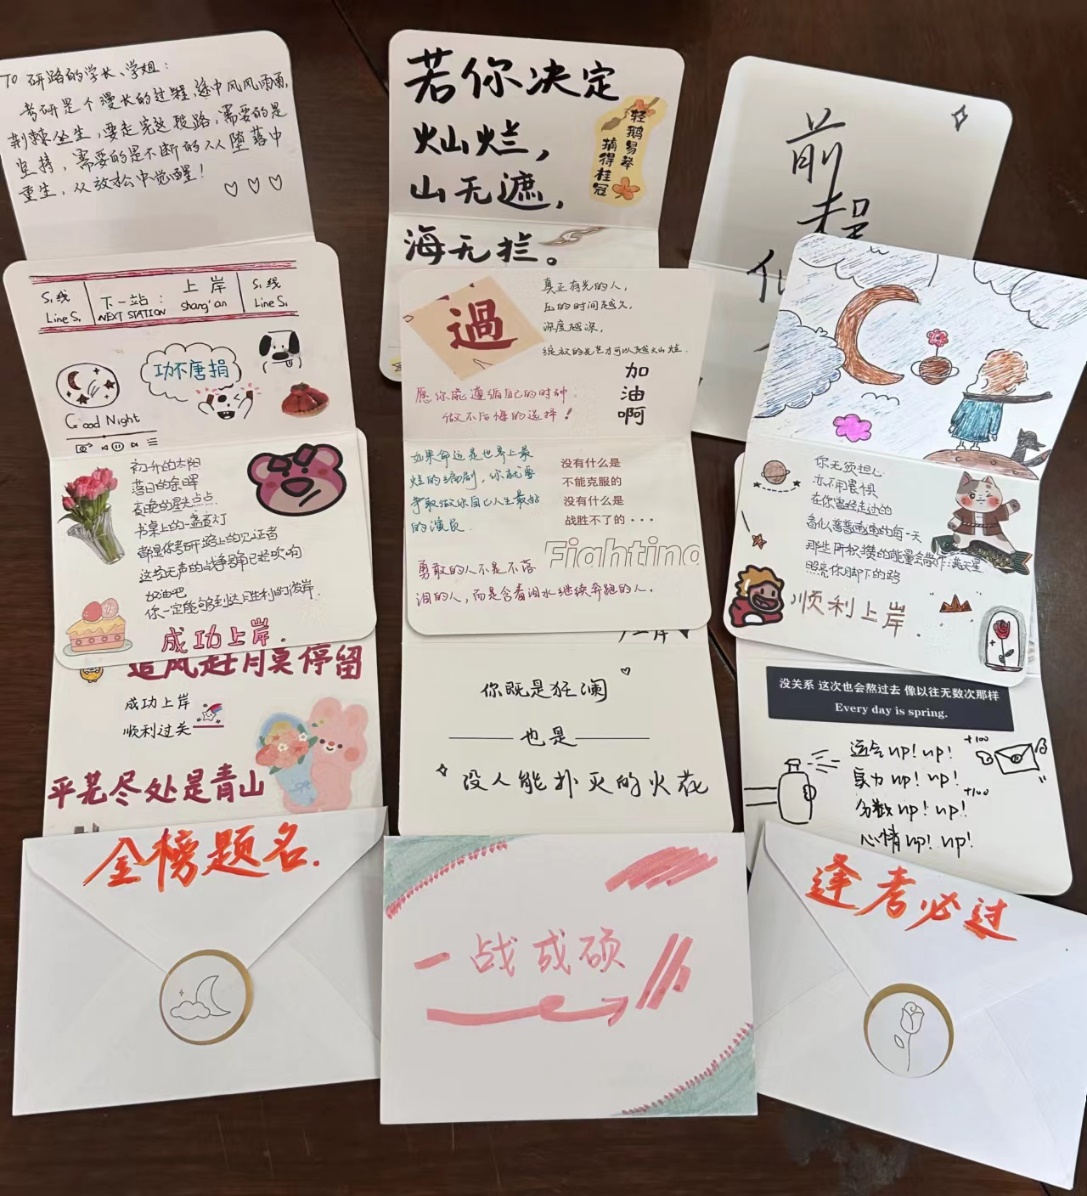 TO 研路的学长、学姐：
考研是个漫长的过程，途中风风雨雨，
荆棘丛生，要走完这段路，需要的是
坚持，需要的是不断的从堕落中
重生，从放松中觉醒！
若你决定
灿烂，
山无遮，
海无拦。
轻鹅易举
摘得桂冠
前
程
S₁线
Line S₁
下一站：
NEXT STATION
上岸
shang'an
S₁线
Line S₁
功不唐捐
Good Night
初升的太阳
落日的余晖
夜晚的星光点点
书桌上的一盏盏灯
都是你考研路上的见证者
这场无声的战争号角已经吹响
加油吧
你一定能够到达胜利的彼岸
成功上岸.
過
真正有光的人，
压的时间越久，
深度越深，
愿你能遵循自己的时钟
做不后悔的选择！
加
油
啊
如果命运是世界上最
烂的编剧，你就要
争取做你自己人生最好
的演员
没有什么是
不能克服的
没有什么是
战胜不了的···
Fighting
勇敢的人不是不落
泪的人，而是含着泪水继续奔跑的人。
你无须担心
亦不用畏惧
在你曾经走过的
那些所积攒的能量会做作
照亮你脚下的路
顺利上岸.
追风赶月莫停留
成功上岸
顺利过关
平芜尽处是青山
上岸
你既是狂澜
也是
没人能扑灭的火花
没关系 这次也会熬过去 像以往无数次那样
Every day is spring.
运气up! up! +100
实力up! up!
分数up! up! +100
心情up! up!
金榜题名.
一战成硕
逢考必过